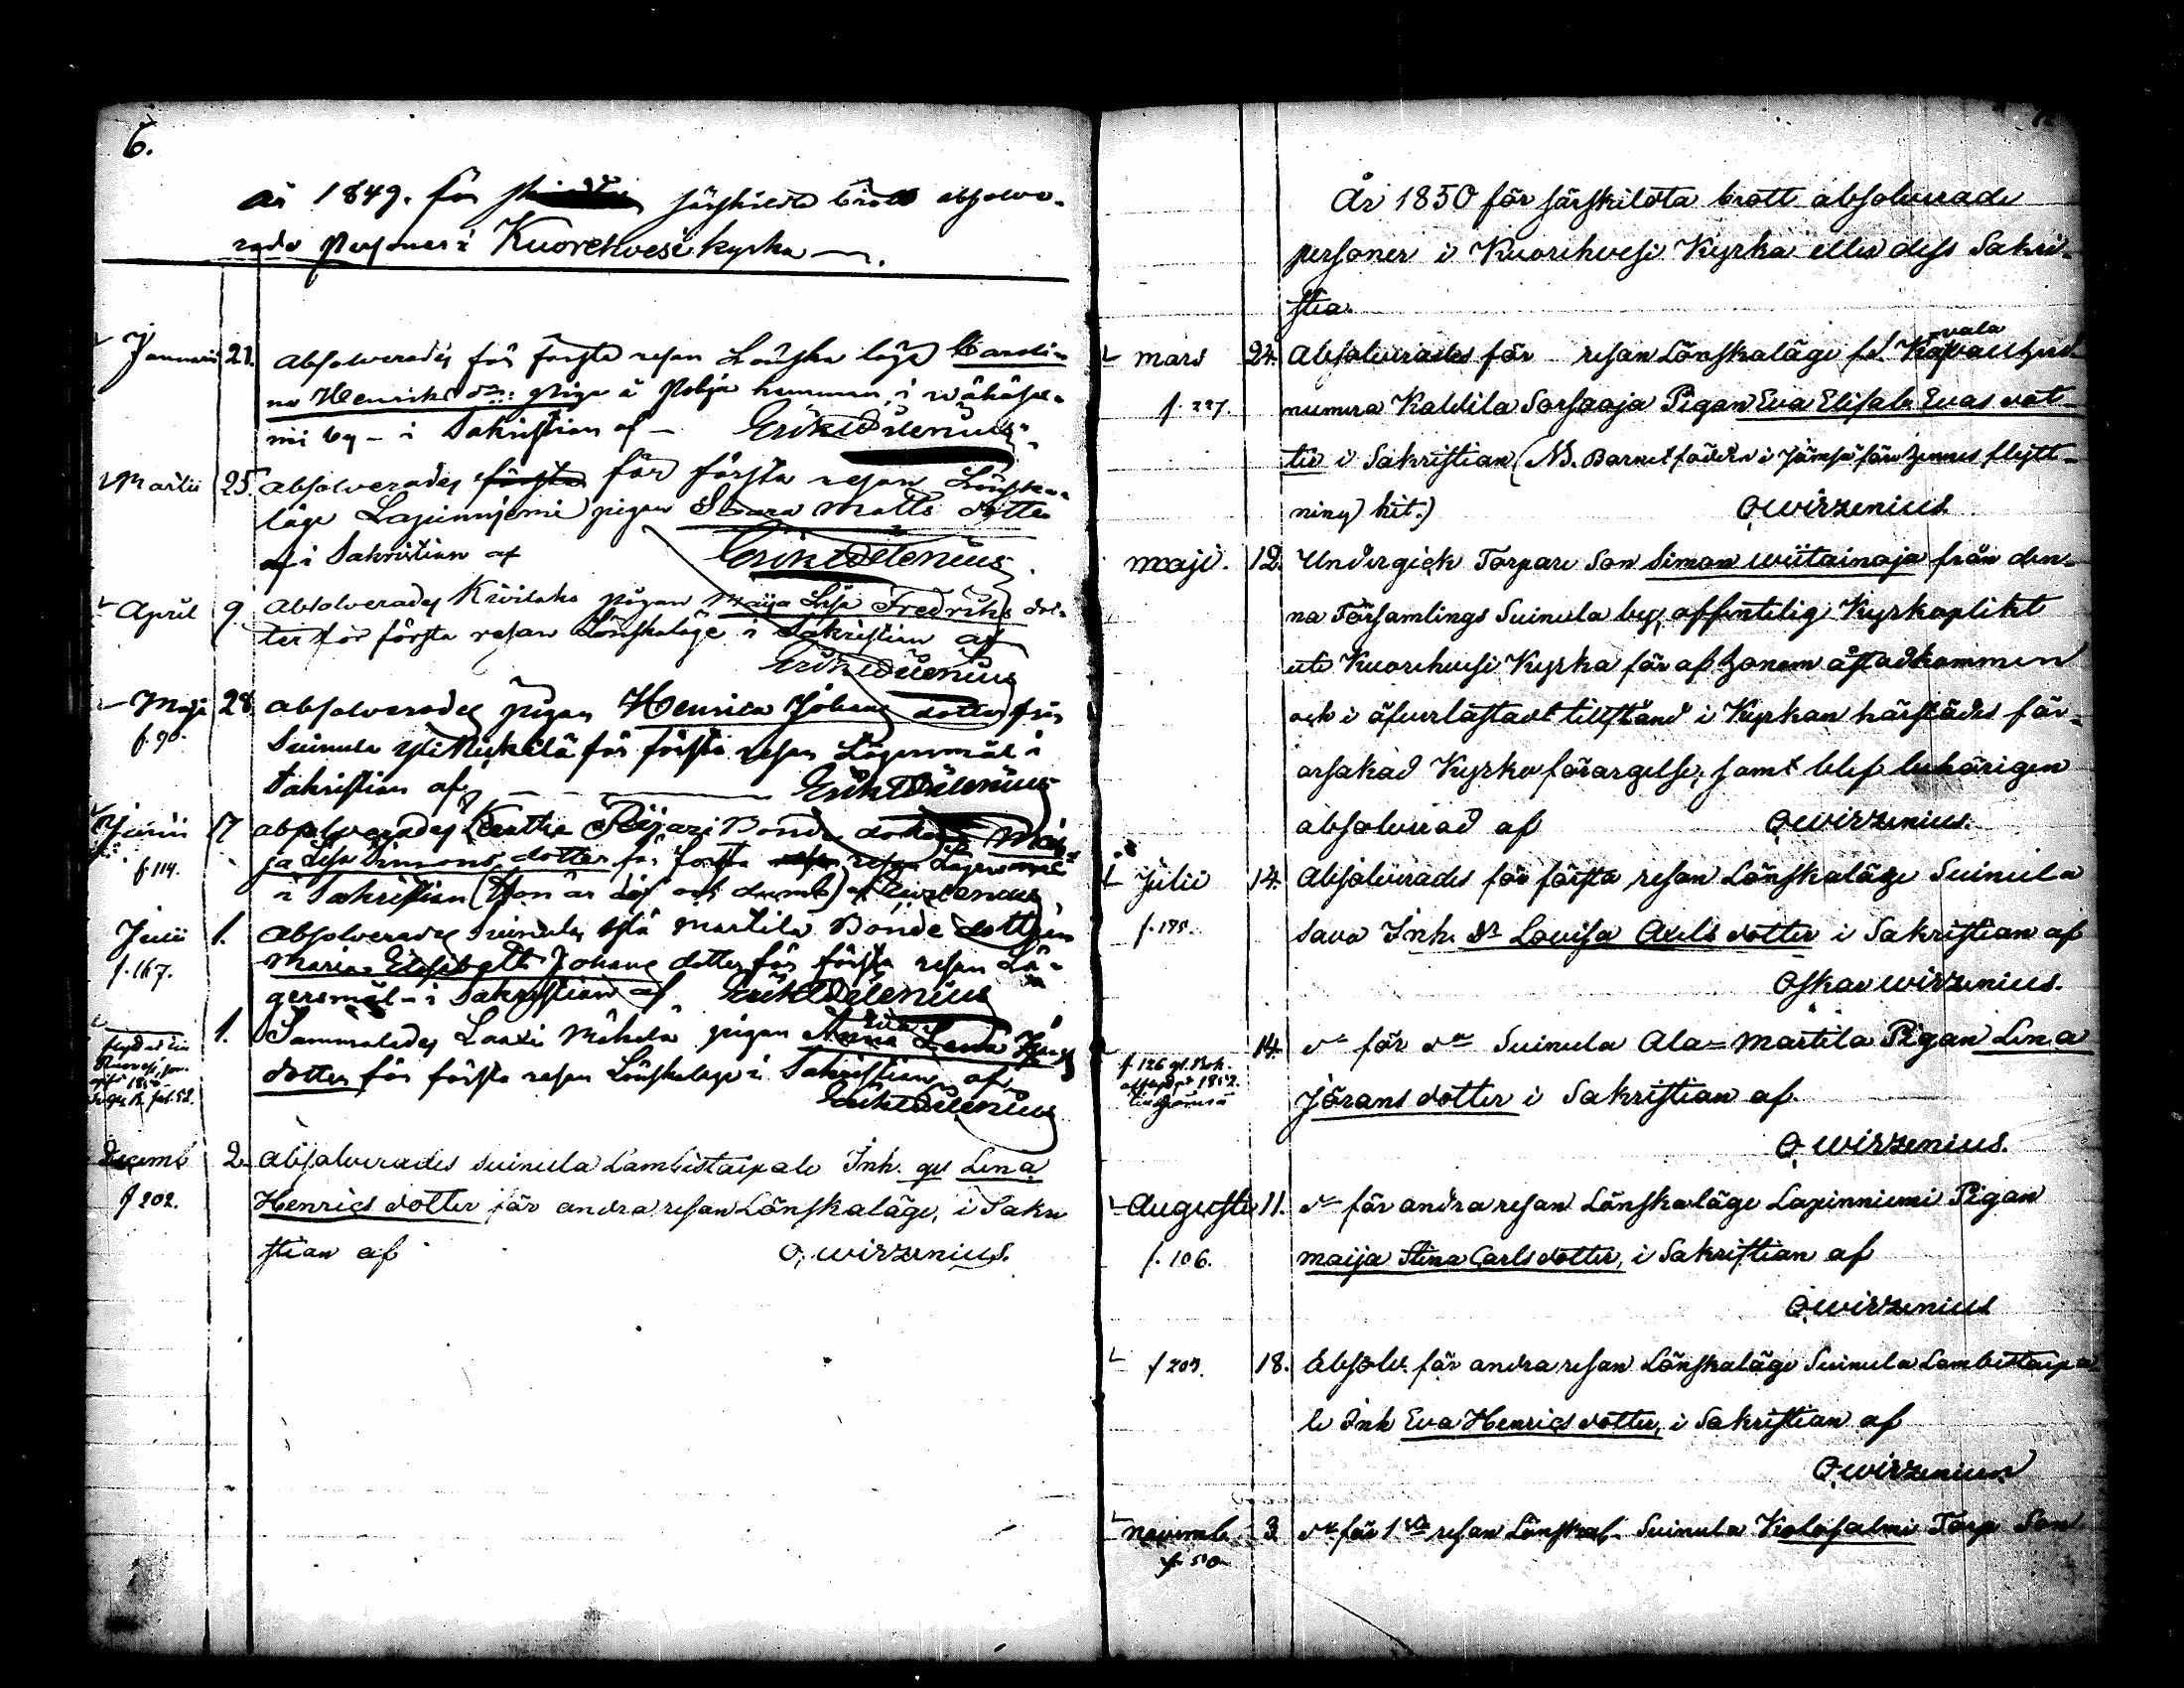 6.
År 1849. för särskilda brott absolve-
rade Personer i Kuorehvesi kyrka
Januarii 21. Absolverades för första resan Lönska läge Caroli-
na Henriks dr: piga å Pohja hemman, i Wähäsal-
mi by - i Sakristian af - Erik Delenius
Martii 25. Absolverades första för första resan Lönska-
läge Lapinniemi pigan Saara Matts dotter
af i Sakristian af Erik Delenius
April 9. Absolverades Kivilaks pigan Maija Lisa Fredriks dot-
ter för första resan Lönskaläge i Sakristian af
Erik Delenius
Maji 28. Absolverades pigan Henrica Johans dotter från
f. 90. Suinula för första resan Lägersmål i
Sakristian af Erik Delenius
Junii 17 absolverades Bonde dottren Mai-
f. 114. ja Lisa Simons dotter för första resan resan Lägersmål
i Sakristian (Hon är döf och dumb) af
Julii 1. Absolverades Suinula Martila Bonde dottren
f. 167. Maria Elisabeth Johans dotter för första resan Lä-
gersmål - i Sakristian af Erik Delenius
1. Sammaledes Mäkelä pigan Lena
dotter för första resan Lönskaläge i Sakristian af
Erik Delenius
Decemb 2. Absolverades Suinula Lambistaipale Inh. Lena
f 202. Henrics dotter för andra resan Lönskaläge, i Sakri
stian af O, Wirzenius.
År 1850 för särskildta brott absolverade
personer i Kuorehvesi Kyrka eller dess Sakri-
stia.
Mars 24. Absolverades för resan Lönskaläge fd.
f. 227. numera Kaldila Sorsaoja Pigan Eva Elisab. Evas dot-
ter i Sakristian (NB. Barnet föddes i Jämsä före hennes flytt-
ning) hit.) O, Wirzenius.
Maji. 12. Undergick Torpare Son Simon Wiitainoja från den-
na Församlings Suinula by, offentelig Kyrkoplikt
uti Kuorehvesi Kyrka för af honom åstadkommen
och i öfverlastadt tillstånd i Kyrkan härstädes för-
orsakad Kyrko förargelse, samt blef behörigen
absolverad af O, Wirzenius.
Julii 14. Absolverades för första resan Lönskaläge Suinula
f. 195. Sava Inh. dr Lovisa Axels dotter i Sakristian af
Oskar Wirzenius.
14. do för do Suinula Ala=Martila Pigan Lena
f. 126
1852.
Jörans dotter i Sakristian af.
O, Wirzenius.
Augusti 11. do för andra resan Lönskaläge Lapinniemi Pigan
f. 106. Maija Stina Carls dotter, i Sakristian af
O, Wirzenius
f 203. 18. Absolv. för andra resan Lönskaläge Suinula Lambistaipa-
le Inh Eva Henrics dotter, i Sakristian af
O, Wirzenius
Novemb. 3. do för 1sta resan Lönskal. Suinula Kolosalmi Torp Son
f. 50